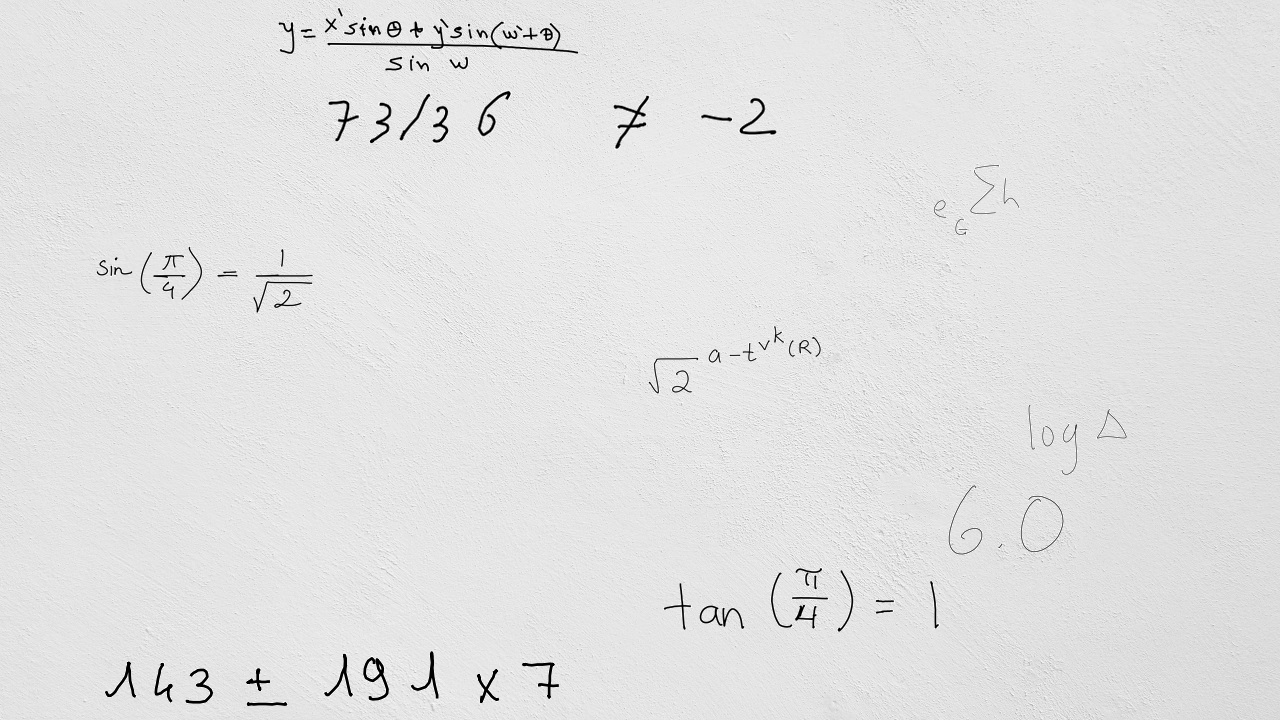 y = \frac{x' sin θ + y' sin(w' + θ)}{sin w}
73/36 ≠ -2
e_G Σ h
sin(\frac{π}{4}) = \frac{1}{\sqrt{2}}
\sqrt{2}^{a - t^{v^{k}}(R)}
log Δ
6.0
tan(\frac{π}{4}) = 1
143 ± 191 x 7